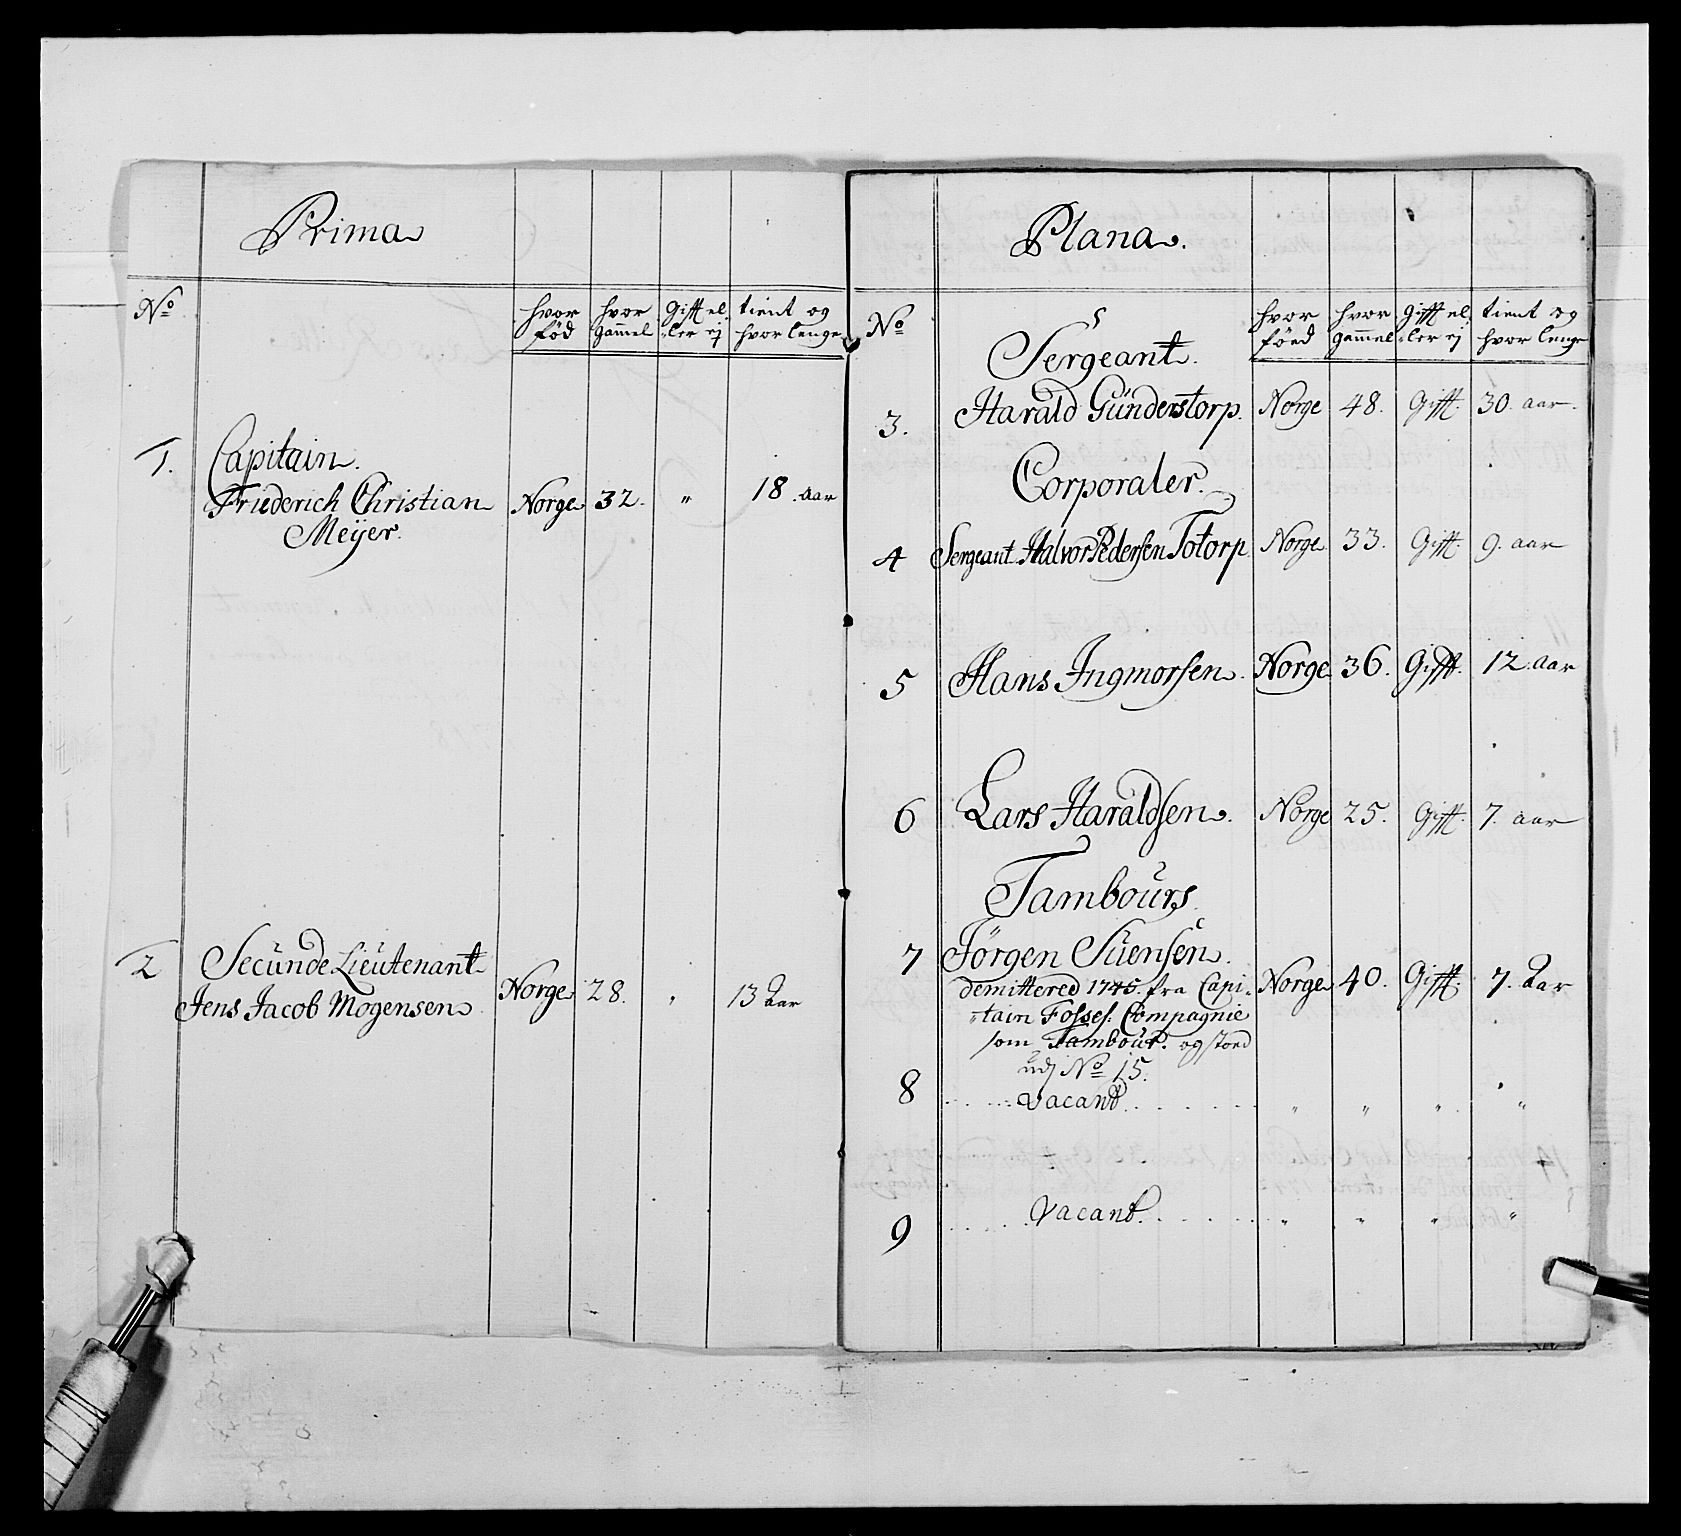 Prima
No hvor fød hvor gammel Gift el,ler ej tient og hvor lenge
1. Capitain.
Friederich Christian Norge 32. " 18. aar
Meÿer.
2 Secunde Lieutenant
Jens Jacob Mogensen Norge 28. " 13 Aar
Plana.
No hvor föed hvor gammel Gifft el,ler ej tient og hvor lenge
Sergeant.
3. Harald Günderstorp. Norge 48. Gifft. 30. aar.
Corporaler.
4 Sergeant Halvor Pedersen Totorp Norge 33. Gifft. 9. aar
5 Hans Ingmorsen. Norge 36. Gifft. 12. aar
6 Lars Haraldsen. Norge 25. Gifft. 7. aar
Tambours
7 Jörgen Suensen.
demittered 1745. fra Capi, Norge 40. Gifft. 7. Aar
"tain Fosses. Compagnie
som Tambour. og stoed
udj No 15.
8 Vacant " " " "
9 Vacant. " " " "